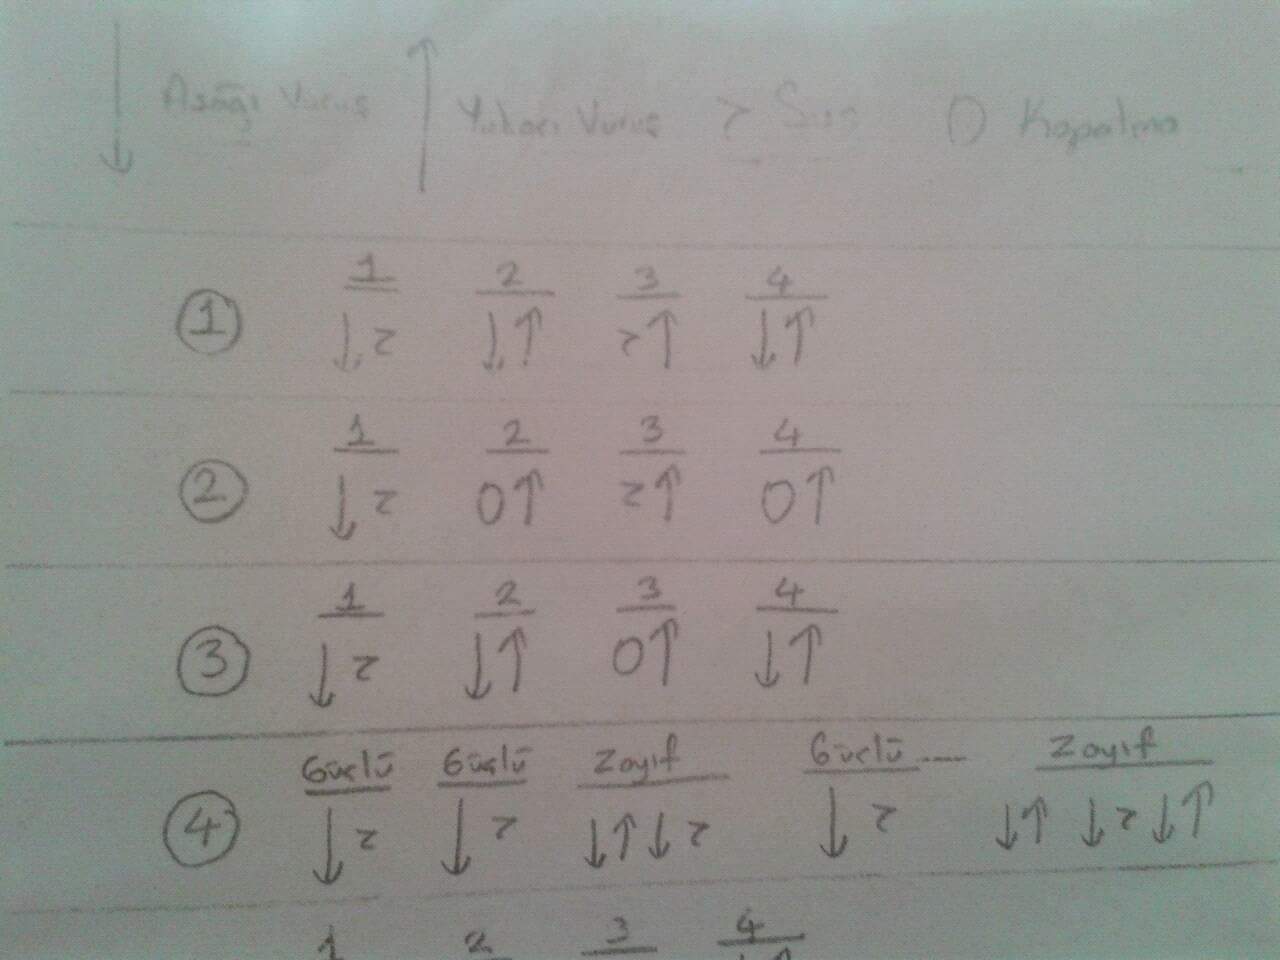 ↓ Aşağı Vuruş ↑ Yukarı Vuruş z O Kapatma
1 2 3 4
① ↓z ↓↑ z↑ ↓↑
1 2 3 4
② ↓z O↑ z↑ O↑
1 2 3 4
③ ↓z ↓↑ O↑ ↓↑
Güçlü Güçlü Zayıf Güçlü ---- Zayıf
④ ↓z ↓z ↓↑↓z ↓z ↓↑↓z↓↑
1 2 3 4